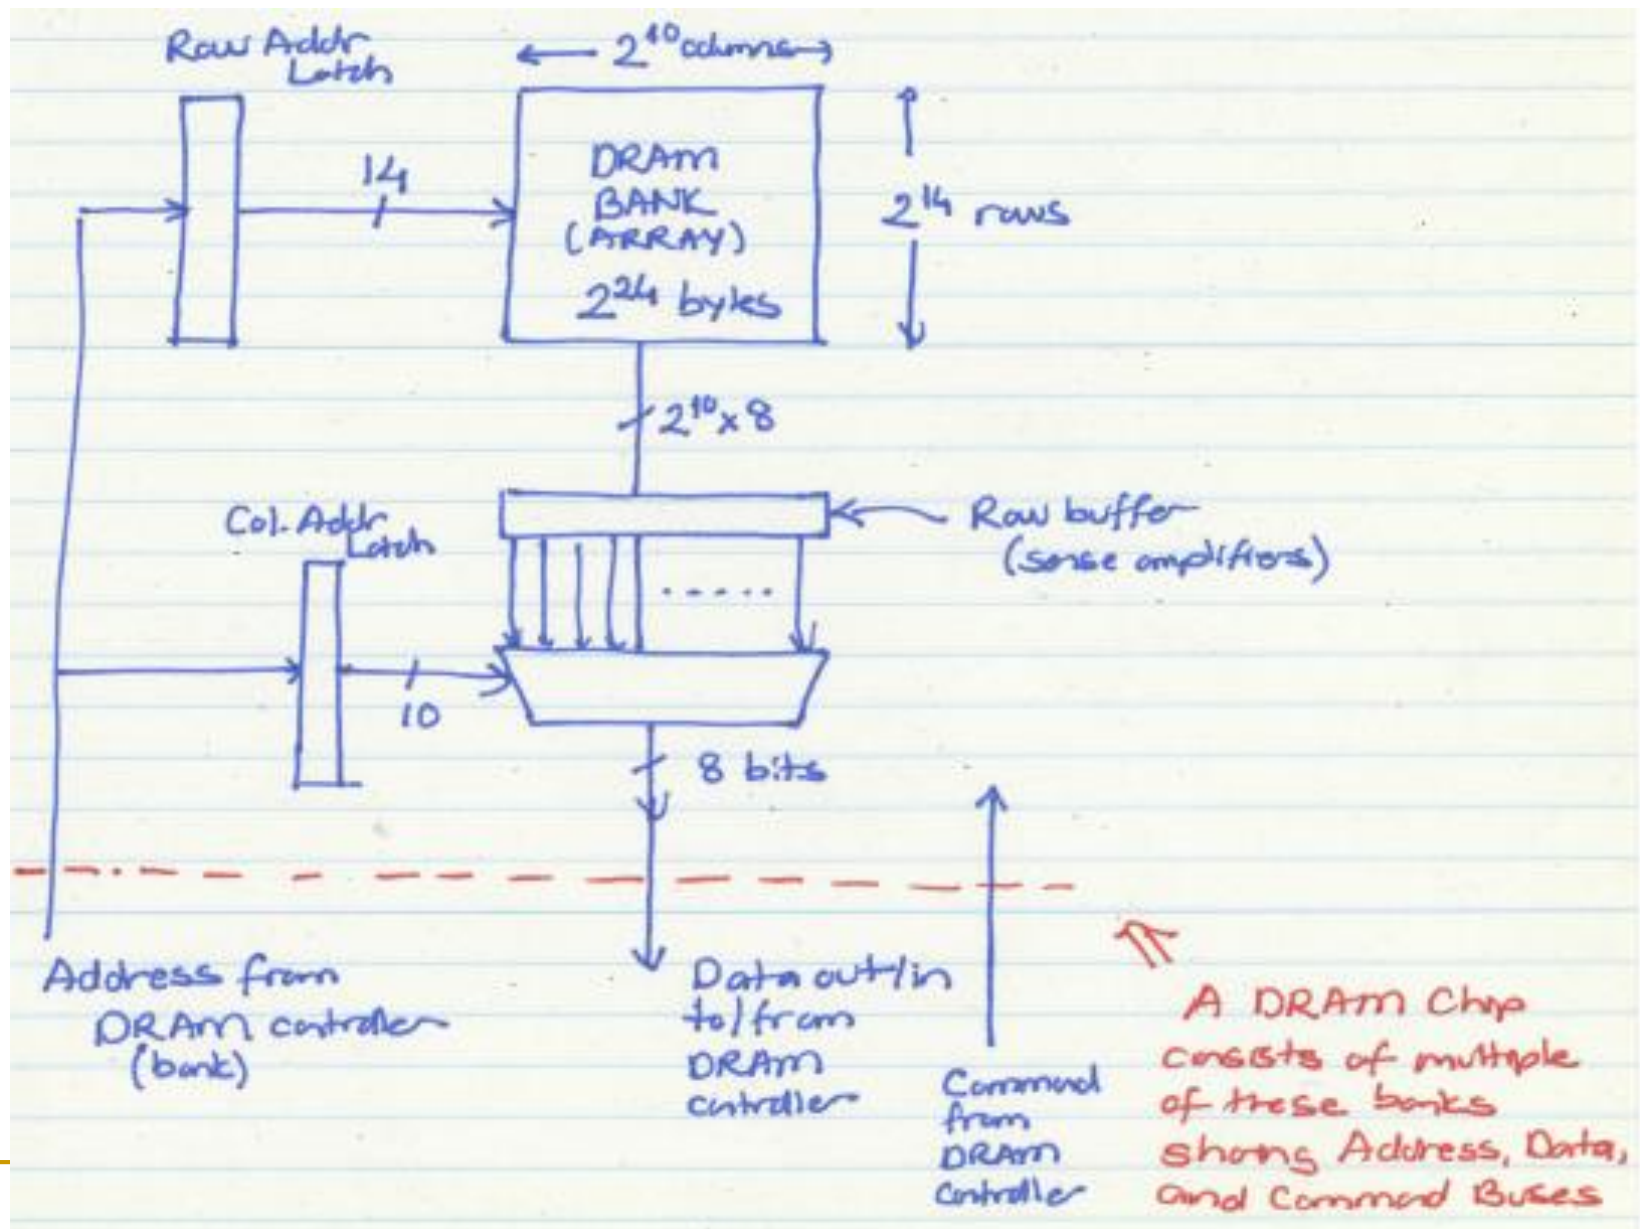 Row Addr
Latch
2^10 columns
14
DRAM
BANK
(ARRAY)
2^24 bytes
2^14 rows
2^10 x 8
Col. Addr
Latch
Row buffer
(sense amplifiers)
10
8 bits
Address from
DRAM controller
(bank)
Data out/in
to/from
DRAM
controller
Command
from
DRAM
controller
A DRAM Chip
consists of multiple
of these banks
sharing Address, Data,
and Command Buses